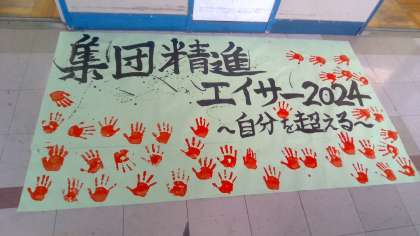 集団精進
エイサー2024
～自分を超える～